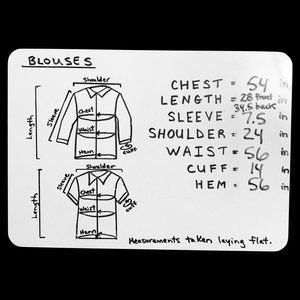 BLOUSES
Shoulder
Sleeve
Chest
Length
Waist
Cuff
Hem
Shoulder
Sleeve
Chest
Length
Waist
Cuff
Hem
CHEST = 54 in
LENGTH = 28 front 34.5 back in
SLEEVE = 7.5 in
SHOULDER = 24 in
WAIST = 56 in
CUFF = 14 in
HEM = 56 in
Measurements taken laying flat.